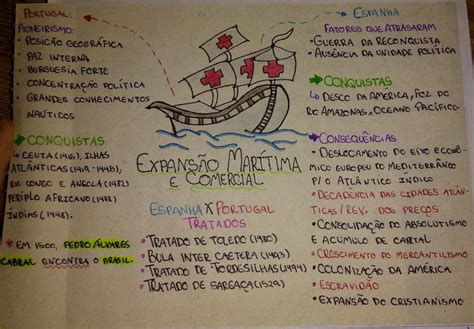 PORTUGAL:
PIONEIRISMO:
• POSIÇÃO GEOGRÁFICA
• PAZ INTERNA
• BURGUESIA FORTE
• CONCENTRAÇÃO POLÍTICA
• GRANDES CONHECIMENTOS
NÁUTICOS
CONQUISTAS
↳ CEUTA (1415), ILHAS
ATLÂNTICAS (1419-1445),
RIO CONGO E ANGOLA (1482)
PERÍPLO AFRICANO (1488)
ÍNDIAS (1498).
* EM 1500, PEDRO ÁLVARES
CABRAL ENCONTRA O BRASIL.
EXPANSÃO MARÍTIMA
E COMERCIAL
ESPANHA X PORTUGAL
TRATADOS
• TRATADO DE TOLEDO (1480)
• BULA INTER CAETERA (1493)
• TRATADO DE TORDESILHAS (1494)
• TRATADO DE SARGAÇA (1529)
ESPANHA
FATORES QUE ATRASARAM
• GUERRA DA RECONQUISTA
• AUSÊNCIA DA UNIDADE POLÍTICA
CONQUISTAS
↳ DESCO DA AMÉRICA, FOZ DO
RIO AMAZONAS, OCEANO PACÍFICO
CONSEQUÊNCIAS
• DESLOCAMENTO DO EIXO ECONÔ-
MICO EUROPEU DO MEDITERRÂNEO
P/ O ATLÂNTICO ÍNDICO
• DECADÊNCIA DAS CIDADES ATLÂN-
TICAS / REV. DOS PREÇOS
• CONSOLIDAÇÃO DO ABSOLUTISMO
E ACUMULO DE CAPITAL
• CRESCIMENTO DO MERCANTILISMO
• COLONIZAÇÃO DA AMÉRICA
• ESCRAVIDÃO
• EXPANSÃO DO CRISTIANISMO